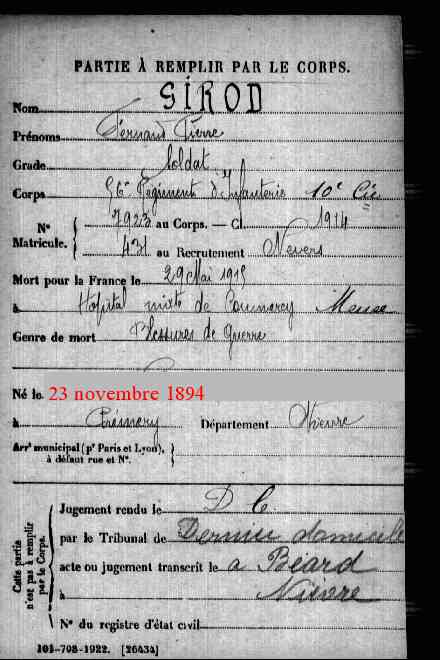 PARTIE À REMPLIR PAR LE CORPS.
Nom SIROD
Prénoms Fernand Pierre
Grade Soldat
Corps 56e Régiment d'Infanterie 10e Cie
Nº Matricule. { 7923 au Corps. — Cl. 1914
431 au Recrutement Nevers
Mort pour la France le 29 Mai 1915
à Hôpital mixte de Commercy Meuse
Genre de mort Blessures de guerre
Né le 23 novembre 1894
à Prémery Département Nièvre
Arrt municipal (pr Paris et Lyon), à défaut rue et Nº. }
Cette partie n'est pas à remplir par le Corps.
Jugement rendu le D C
par le Tribunal de Dernier domicile
acte ou jugement transcrit le a Béard
à Nièvre
Nº du registre d'état civil
101-708-1922. [26434]